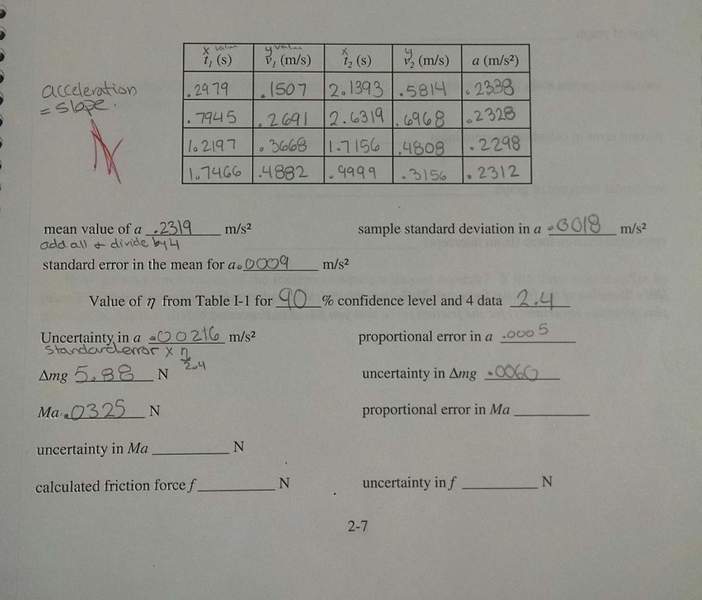 x value y value x y
t₁ (s) v₁ (m/s) t₂ (s) v₂ (m/s) a (m/s²)
.2979 .1507 2.1393 .5814 .2338
acceleration
= slope.
.7945 .2691 2.6319 .6968 .2328
1.2197 .3668 1.7156 .4808 .2298
1.7466 .4882 .9999 .3156 .2312
mean value of a .2319 m/s² sample standard deviation in a .0018 m/s²
add all & divide by 4
standard error in the mean for a .0009 m/s²
Value of η from Table I-1 for 90 % confidence level and 4 data 2.4
Uncertainty in a .00216 m/s² proportional error in a .0005
standard error x η
2.4
Δmg 5.88 N uncertainty in Δmg .0060
Ma .0325 N proportional error in Ma
uncertainty in Ma N
calculated friction force f N uncertainty in f N
2-7